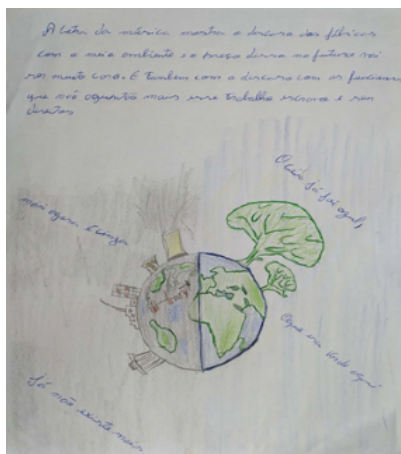 A letra da música mostra o descuso das fábricas
com o meio ambiente e o preço disso no futuro vai
ser muito caro. E também com o descuso com os funcionários
que não aguentão mais esse trabalho escravo e sem
direitos
O céu já foi azul,
mais agora é cinza
O que era verde aqui
Já não existe mais